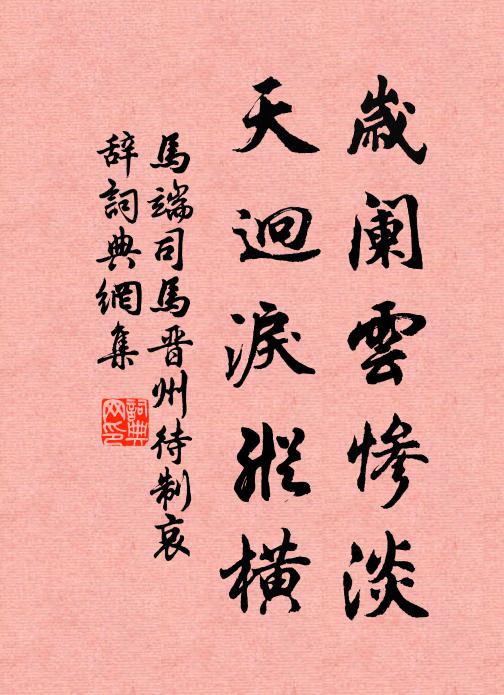 歲阑雲慘淡
天迥淚縱橫
馬端司馬晋州待制哀
辞詞典網集
詞典
网印